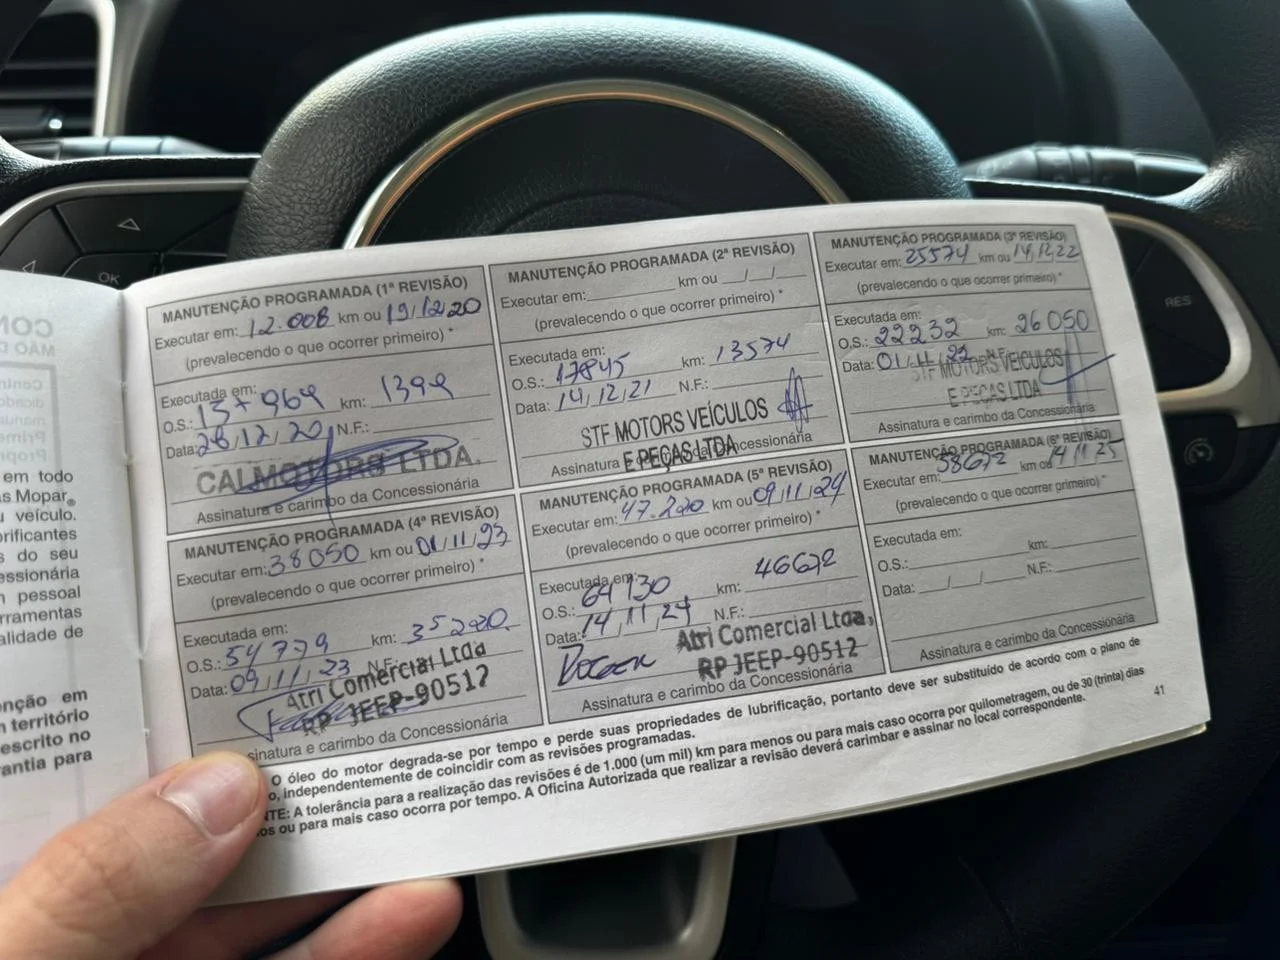 OK
RES
em todo
as Mopar®
u veículo.
brificantes
s do seu
essionária
n pessoal
rramentas
alidade de
enção em
n território
escrito no
rantia para
MANUTENÇÃO PROGRAMADA (1ª REVISÃO)
Executar em: 12.008 km ou 19/12/20
(prevalecendo o que ocorrer primeiro) *
Executada em:
O.S.: km:
Data: 28/12/20 N.F.:
CALMOTORS LTDA.
Assinatura e carimbo da Concessionária
MANUTENÇÃO PROGRAMADA (2ª REVISÃO)
Executar em: km ou / /
(prevalecendo o que ocorrer primeiro) *
Executada em:
O.S.: 17845 km: 13574
Data: 14/12/21 N.F.:
STF MOTORS VEÍCULOS
E PEÇAS LTDA
Assinatura e carimbo da Concessionária
MANUTENÇÃO PROGRAMADA (3ª REVISÃO)
Executar em: 25574 km ou 14/12/22
(prevalecendo o que ocorrer primeiro) *
Executada em:
O.S.: 22232 km: 26050
Data: 01/11/22 N.F.
STF MOTORS VEICULOS
E PEÇAS LTDA
Assinatura e carimbo da Concessionária
MANUTENÇÃO PROGRAMADA (4ª REVISÃO)
Executar em: 38050 km ou 01/11/23
(prevalecendo o que ocorrer primeiro) *
Executada em:
O.S.: 54779 km: 35220
Data: 09/11/23 N.F.:
Atri Comercial Ltda
RP JEEP-90512
sinatura e carimbo da Concessionária
MANUTENÇÃO PROGRAMADA (5ª REVISÃO)
Executar em: 47.220 km ou 09/11/24
(prevalecendo o que ocorrer primeiro) *
Executada em:
O.S.: 64130 km: 46672
Data: 14/11/24 N.F.:
Atri Comercial Ltda,
RP JEEP-90512
Assinatura e carimbo da Concessionária
MANUTENÇÃO PROGRAMADA (6ª REVISÃO)
Executar em: 58672 km ou 14/11/25
(prevalecendo o que ocorrer primeiro) *
Executada em:
O.S.: km:
Data: / / N.F.:
Assinatura e carimbo da Concessionária
O óleo do motor degrada-se por tempo e perde suas propriedades de lubrificação, portanto deve ser substituído de acordo com o plano de
o, independentemente de coincidir com as revisões programadas.
NTE: A tolerância para a realização das revisões é de 1.000 (um mil) km para menos ou para mais caso ocorra por quilometragem, ou de 30 (trinta) dias
os ou para mais caso ocorra por tempo. A Oficina Autorizada que realizar a revisão deverá carimbar e assinar no local correspondente.
41